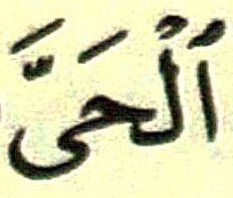 ٱلْحَىَّ